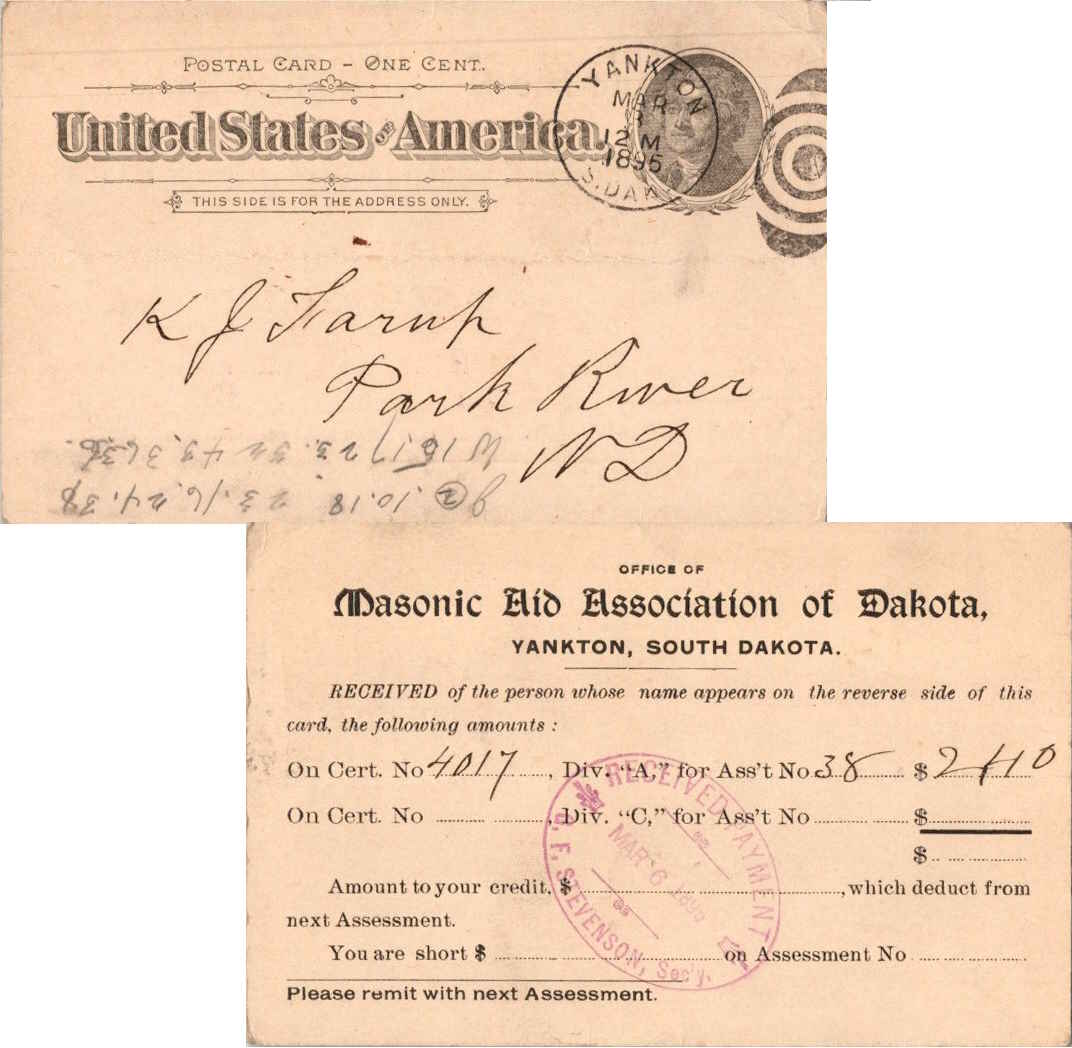 POSTAL CARD - ONE CENT.
United States of America.
THIS SIDE IS FOR THE ADDRESS ONLY.
YANKTON
MAR
12 M
1895
S.DAK
K J Farup
Park River
N D
W 15 17 23. 32 43. 36 36.
② 10.18 23. 16. 24. 38
OFFICE OF
Masonic Aid Association of Dakota,
YANKTON, SOUTH DAKOTA.
RECEIVED of the person whose name appears on the reverse side of this
card, the following amounts :
On Cert. No 4017, Div. "A," for Ass't No 38 $ 2 40
On Cert. No , Div. "C," for Ass't No $
$
Amount to your credit, $ , which deduct from
next Assessment.
You are short $ on Assessment No
Please remit with next Assessment.
RECEIVED PAYMENT
MAR 6 1895
F. STEVENSON, Sec'y.